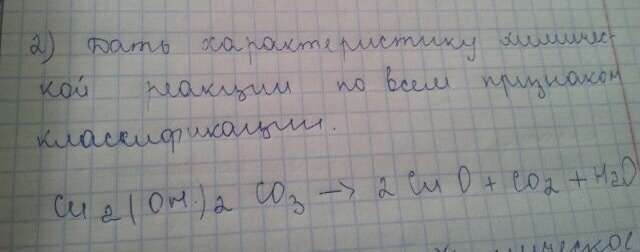 2) Дать характеристику химичес-
кой реакции по всем признакам
классификации.
Cu2(OH)2 CO3 → 2CuO + CO2 + H2O